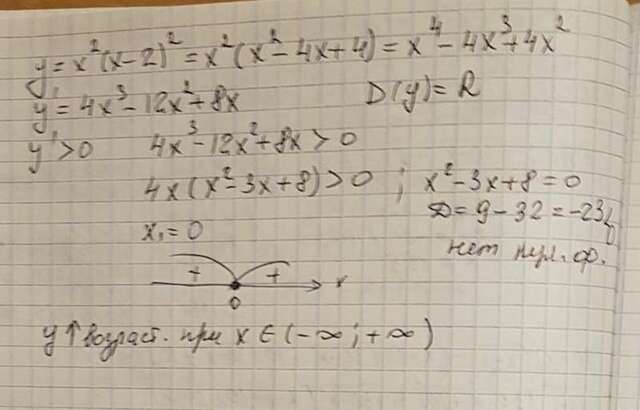 y = x²(x-2)² = x²(x²-4x+4) = x⁴-4x³+4x²
y' = 4x³-12x²+8x D(y) = R
y' > 0 4x³-12x²+8x > 0
4x(x²-3x+8) > 0 ; x²-3x+8 = 0
D = 9-32 = -23
x₁ = 0 нет нул. ф.
+ + x
0
y ↑ возраст. при x ∈ (-∞; +∞)